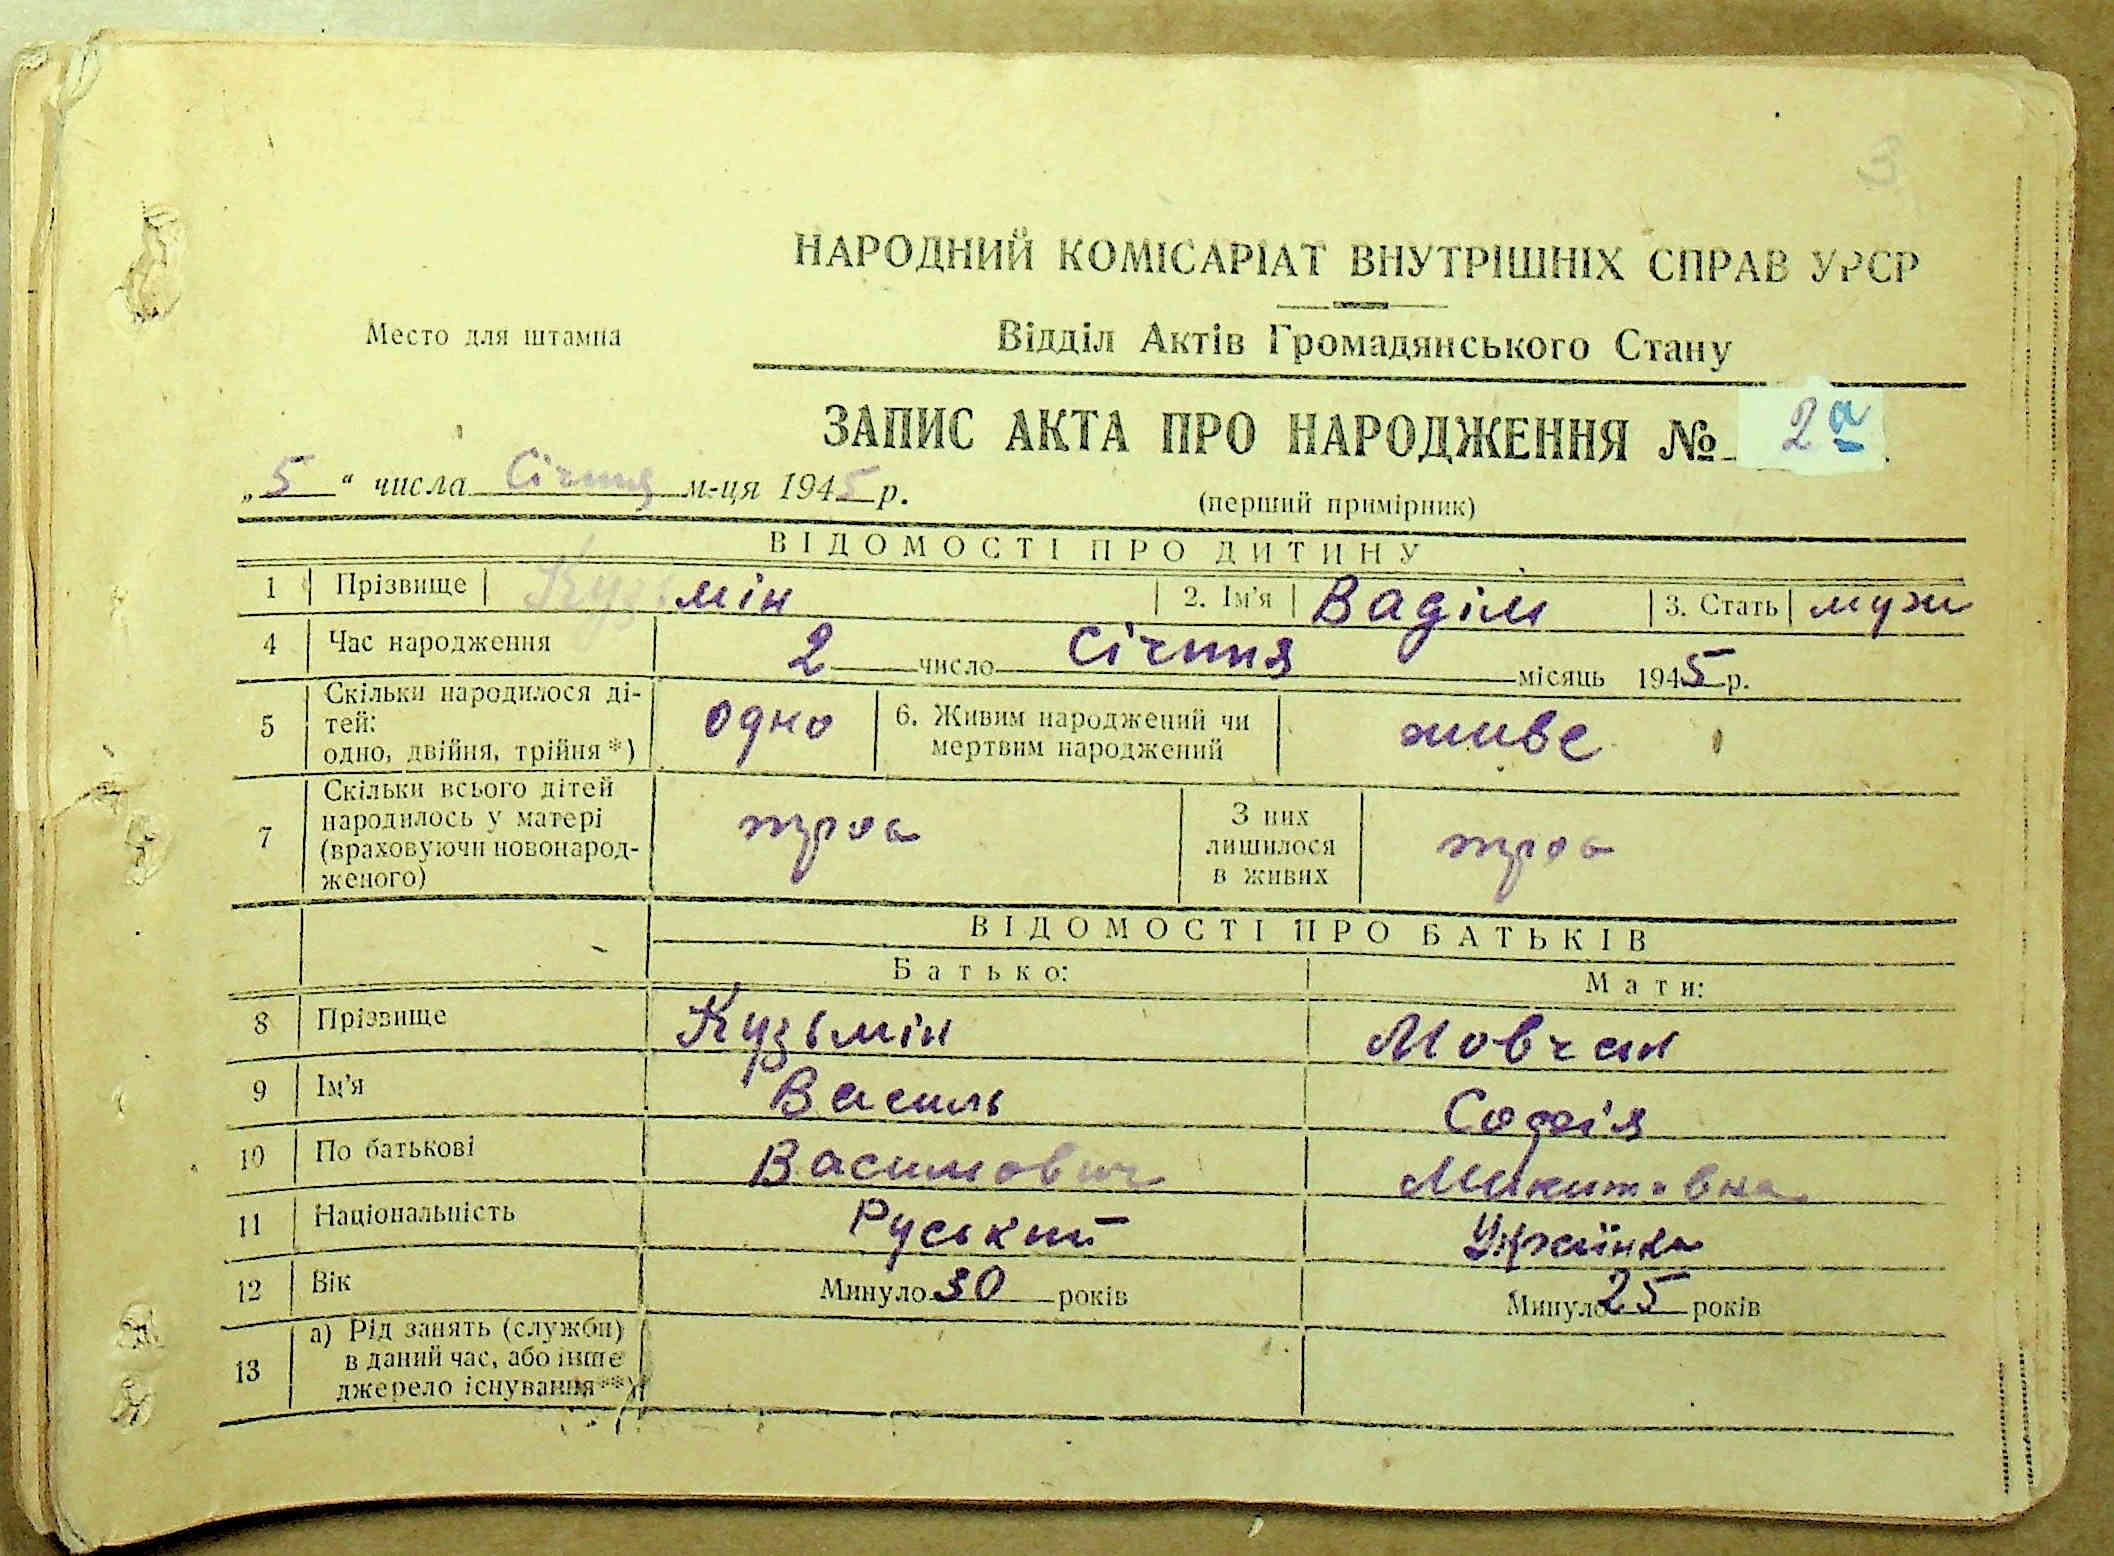 3
НАРОДНИЙ КОМІСАРІАТ ВНУТРІШНІХ СПРАВ УРСР
Место для штампа
Відділ Актів Громадянського Стану
ЗАПИС АКТА ПРО НАРОДЖЕННЯ № 2а
„5“ числа Січня м-ця 1945 р.
(перший примірник)
ВІДОМОСТІ ПРО ДИТИНУ
1 Прізвище Кузьмін 2. Ім'я Вадім 3. Стать муж
4 Час народження 2 число Січня місяць 1945 р.
5 Скільки народилося ді-
тей:
одно, двійня, трійня*) одно 6. Живим народжений чи
мертвим народжений живе
7 Скільки всього дітей
народилось у матері
(враховуючи новонарод-
женого) троє З них
лишилося
в живих троє
ВІДОМОСТІ ПРО БАТЬКІВ
Батько: Мати:
8 Прізвище Кузьмін Мовчан
9 Ім'я Василь Софія
10 По батькові Васильович Микитовна
11 Національність Руський Українка
12 Вік Минуло 30 років Минуло 25 років
13 а) Рід занять (служби)
в даний час, або інше
джерело існування**)